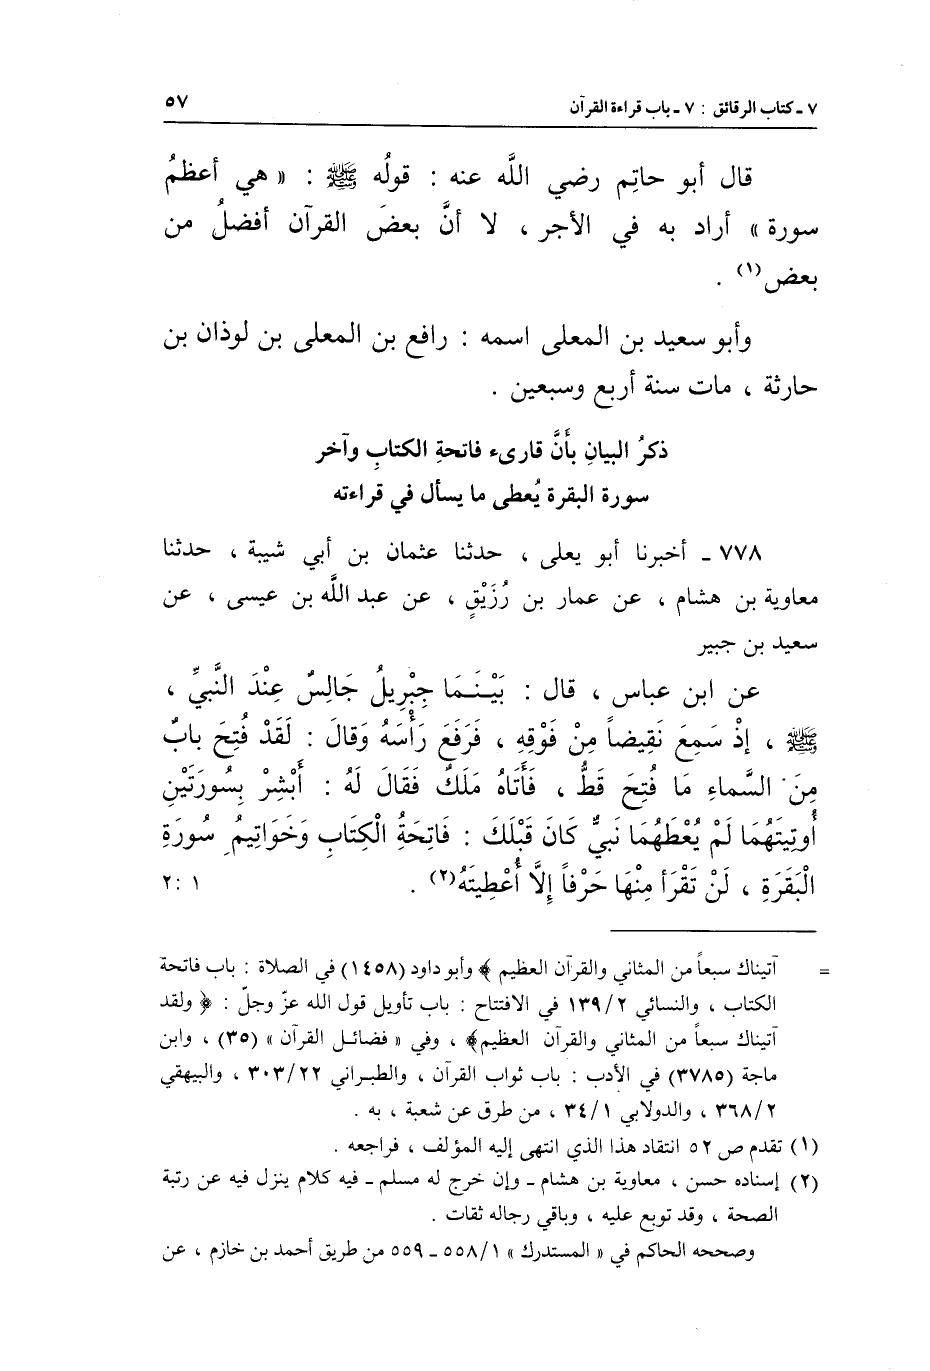 ٧ ـ كتاب الرقائق : ٧ ـ باب قراءة القرآن ٥٧
قال أبو حاتِم رضي اللَّه عنه : قولُه ﷺ : « هي أعظمُ
سورة » أراد به في الأجر ، لا أنَّ بعضَ القرآن أفضلُ من
بعض(١) .
وأبو سعيد بن المعلى اسمه : رافع بن المعلى بن لوذان بن
حارثة ، مات سنة أربع وسبعين .
ذكرُ البيانِ بأنَّ قارىء فاتحةِ الكتابِ وآخر
سورة البقرة يُعطى ما يسأل في قراءته
٧٧٨ ـ أخبرنا أبو يعلى ، حدثنا عثمان بن أبي شيبة ، حدثنا
معاوية بن هشام ، عن عمار بن رُزَيْقٍ ، عن عبد اللَّه بن عيسى ، عن
سعيد بن جبير
عن ابن عباس ، قال : بَيْنَمَا جِبْرِيلُ جَالِسٌ عِنْدَ النَّبيِّ ،
ﷺ ، إذْ سَمِعَ نَقِيضاً مِنْ فَوْقِهِ ، فَرَفَعَ رَأْسَهُ وَقالَ : لَقَدْ فُتِحَ بابٌ
مِنَ السَّماءِ مَا فُتِحَ قَطُّ ، فَأَتَاهُ مَلَكٌ فَقَالَ لَهُ : أَبْشِرْ بِسُورَتَيْنِ
أُوتِيتَهُمَا لَمْ يُعْطَهُمَا نَبيٌّ كَانَ قَبْلَكَ : فَاتِحَةُ الْكِتَابِ وَخَوَاتِيمُ سُورَةِ
الْبَقَرَةِ ، لَنْ تَقْرَأ مِنْهَا حَرْفاً إلَّا أُعْطِيتَهُ(٢) . ١ :٢
= آتيناك سبعاً من المثاني والقرآن العظيم ﴾ وأبو داود (١٤٥٨) في الصلاة : باب فاتحة
الكتاب ، والنسائي ١٣٩/٢ في الافتتاح : باب تأويل قول الله عزّ وجلّ : ﴿ ولقد
آتيناك سبعاً من المثاني والقرآن العظيم﴾ ، وفي « فضائل القرآن » (٣٥) ، وابن
ماجة (٣٧٨٥) في الأدب : باب ثواب القرآن ، والطبراني ٣٠٣/٢٢ ، والبيهقي
٣٦٨/٢ ، والدولابي ٣٤/١ ، من طرق عن شعبة ، به .
(١) تقدم ص ٥٢ انتقاد هذا الذي انتهى إليه المؤلف ، فراجعه .
(٢) إسناده حسن ، معاوية بن هشام ـ وإن خرج له مسلم ـ فيه كلام ينزل فيه عن رتبة
الصحة ، وقد توبع عليه ، وباقي رجاله ثقات .
وصححه الحاكم في « المستدرك » ٥٥٨/١ ـ ٥٥٩ من طريق أحمد بن خازم ، عن